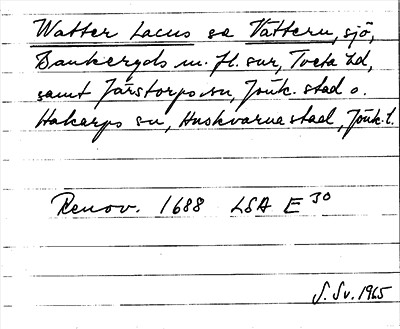 Watter Lacus se Vättern, sjö,
Bankeryds m. fl. snr, Tveta hd,
samt Järstorps sn, Jönk. stad o.
Hakarps sn, Huskvarna stad, Jönk. l.
Renov. 1688 LSA E 30
S. Sv. 1965